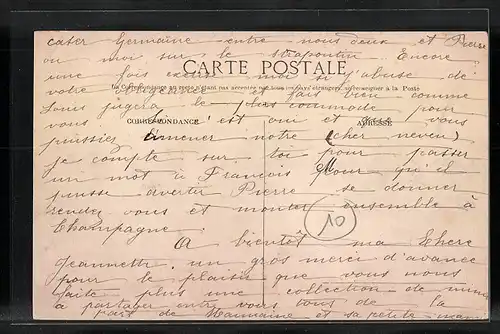 caser Germaine entre nous deux et Pierre
ou moi sur le strapontin Encore
CARTE POSTALE
une fois excuse moi si j'abuse de
(La Correspondance au recto n'étant pas acceptée par tous les pays étrangers, se renseigner à la Poste)
votre et fais bien comme
Louis jugera le plus commode pour
CORRESPONDANCE
ADRESSE
vous c'est oui et que vous
puissiez amener notre (cher neveu)
je compte sur toi pour passer
un mot à François pour qu'il
puisse avertir Pierre se donner
rendez vous et monter ensemble à
Champagne.
10
A bientôt ma chere
Jeannette, un gros merci d'avance
pour le plaisir que vous nous
faite plus une collection de mimis
à partager entre vous tous de la
part de Mamaine et sa petite